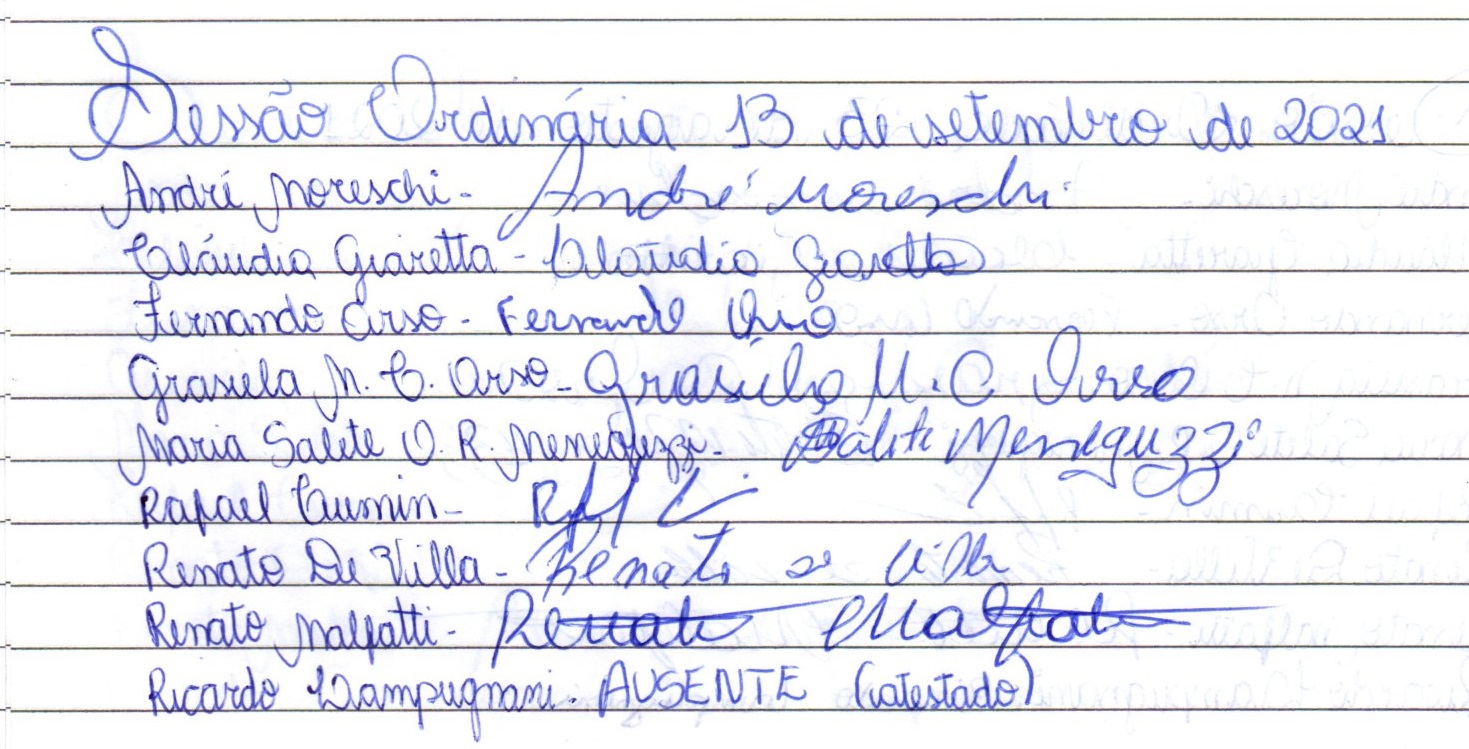 Sessão Ordinária 13 de setembro de 2021
André Moreschi - André Moreschi
Cláudia Giaretta - Claudia Giaretta
Fernando Orso - Fernando Orso
Grasiela M. C. Orso - Grasiela M. C. Orso
Maria Salete O. R. Meneguzzi - Salete Meneguzzi
Rafael Cumin -
Renato De Villa - Renato de Villa
Renato Malfatti - Renato Malfatti
Ricardo Campugnani - AUSENTE (atestado)